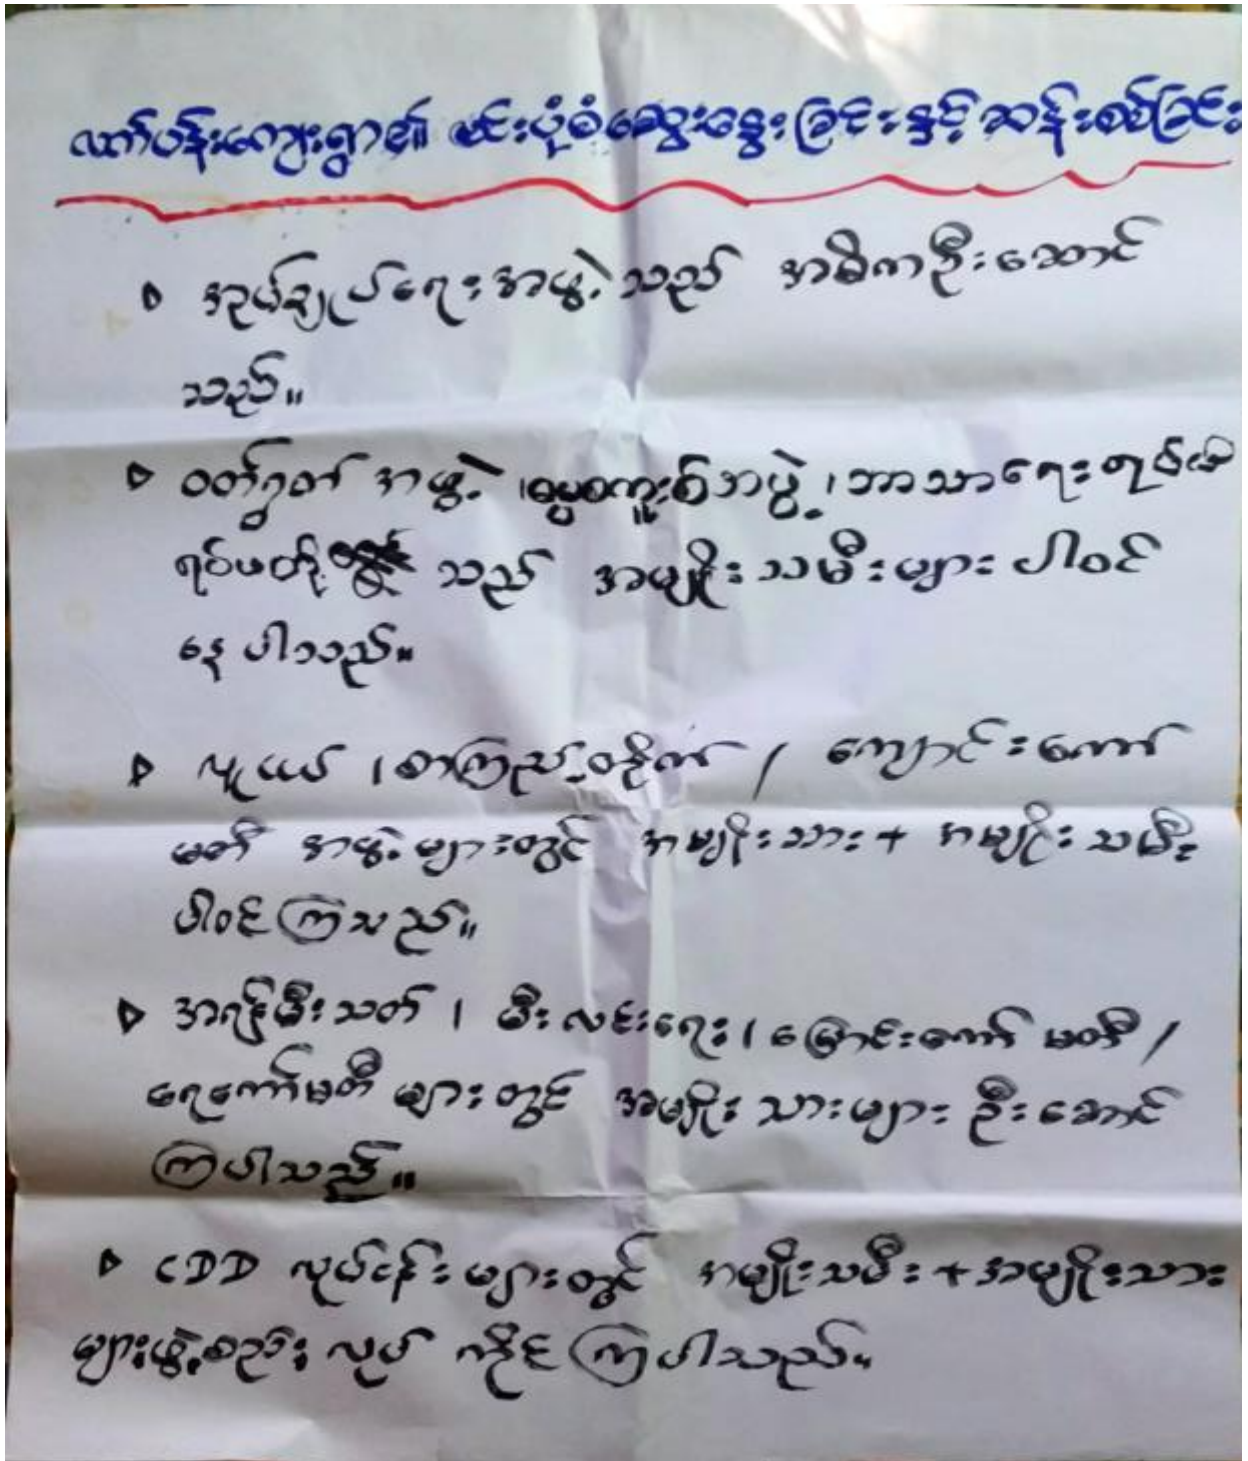 လက်ပန်းကျေးရွာ၏ ဗင်းပုံစံဆွေးနွေးခြင်းနှင့်ဆန်းစစ်ခြင်း
အုပ်ချုပ်ရေးအဖွဲ့သည် အဓိကဦးဆောင်
သည်။
ဝတ်ရွတ်အဖွဲ့၊ဓမ္မစကူးစ်အဖွဲ့၊ဘာသာရေးရပ်မိ
ရပ်ဖတို့ သည် အမျိုးသမီးများ ပါဝင်
နေပါသည်။
လူငယ် ၊စာကြည့်တိုက် / ကျောင်းကော်
မတီ အဖွဲ့များတွင် အမျိုးသား + အမျိုးသမီး
ပါဝင်ကြသည်။
အရန်မီးသတ် ၊ မီးလင်းရေး၊ မြောင်းကော်မတီ /
ရေကော်မတီ များတွင် အမျိုးသားများ ဦးဆောင်
ကြပါသည်။
CDD လုပ်ငန်းများတွင် အမျိုးသမီး+အမျိုးသား
များဖွဲ့စည်း လုပ်ကိုင်ကြပါသည်။